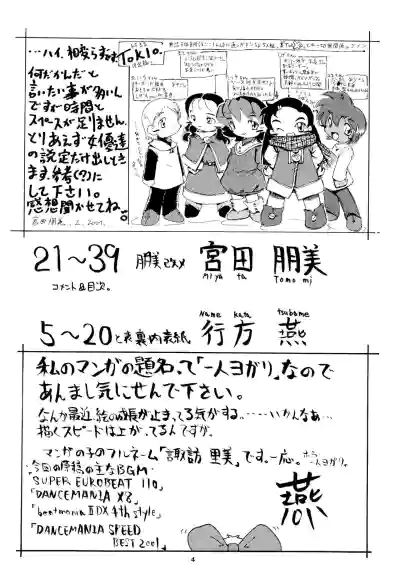 …ハイ、相変らずな Tokio.
何だかんだと
言いたい事が多いん
ですが時間と
スペースが足りません。
とりあえず女優達
の設定だけ出してき
ます。参考(?)に
して下さい。
感想聞かせてね。
宮田朋美. 2. 2001.
21～39 朋美改メ 宮田 朋美
Miya ta Tomo mi
コメント&目次。
Name kata tsubame
5～20と表裏内表紙 行方 燕
私のマンガの題名って「一人ヨガリ」なので
あんまし気にせんで下さい。
なんか最近、絵の成長が止まってる気がする。……いかんなあ…
描くスピードは上がってるんですが。
マンガの子のフルネーム「諏訪 里美」です。一応。
今回の原稿の主なBGM.
「SUPER EUROBEAT 110」
「DANCEMANIA X8」
「beatmania II DX 4th style」
「DANCEMANIA SPEED
BEST 2001」
燕
4